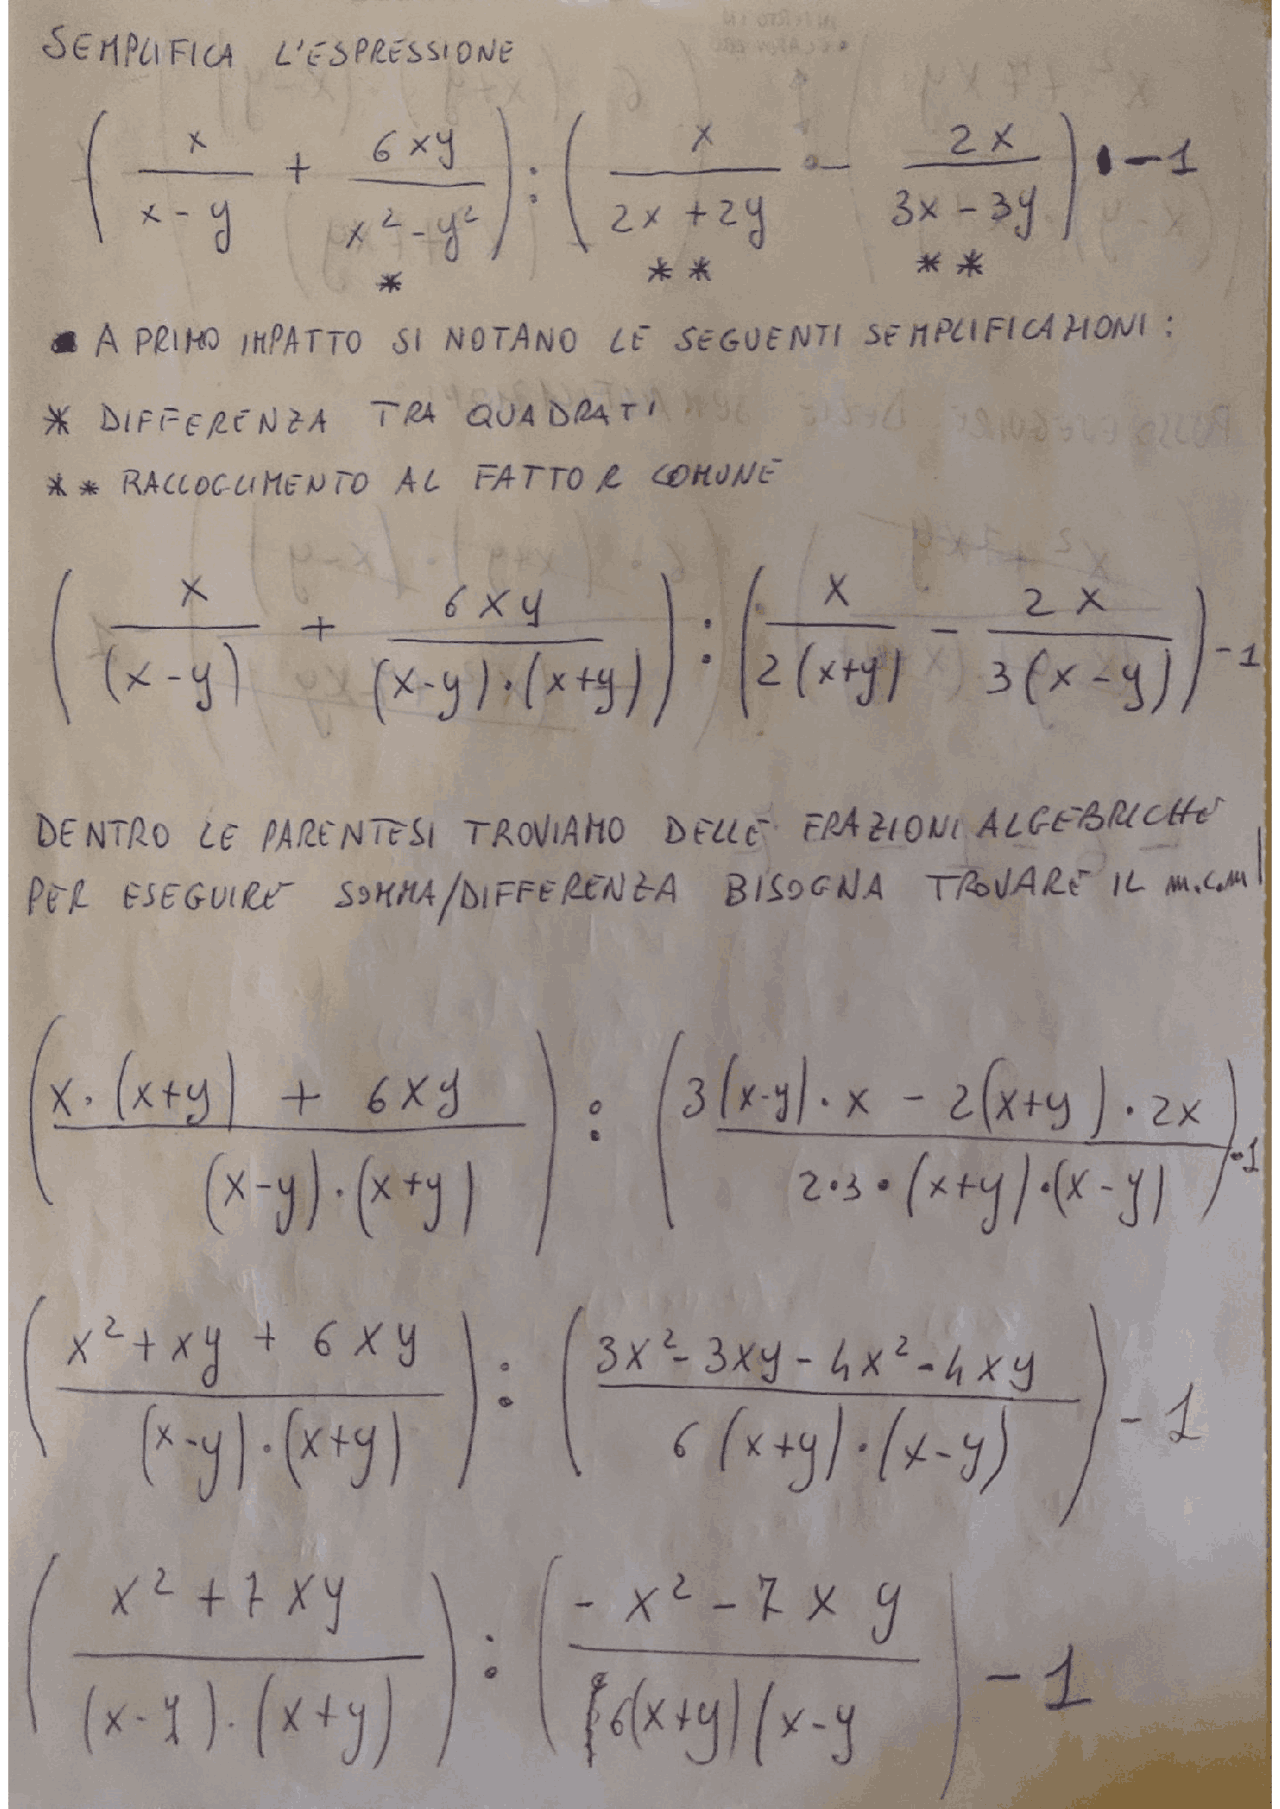 SEMPLIFICA L'ESPRESSIONE
( x/(x-y) + 6xy/(x²-y²) ) : ( x/(2x+2y) - 2x/(3x-3y) ) • -1
* ** **
A PRIMO IMPATTO SI NOTANO LE SEGUENTI SEMPLIFICAZIONI:
* DIFFERENZA TRA QUADRATI
** RACCOGLIMENTO AL FATTOR COMUNE
( x/(x-y) + 6xy/((x-y)·(x+y)) ) : ( x/(2(x+y)) - 2x/(3(x-y)) ) -1
DENTRO LE PARENTESI TROVIAMO DELLE FRAZIONI ALGEBRICHE
PER ESEGUIRE SOMMA/DIFFERENZA BISOGNA TROVARE IL m.c.m
( (x·(x+y) + 6xy)/((x-y)·(x+y)) ) : ( (3(x-y)·x - 2(x+y)·2x)/(2·3·(x+y)·(x-y)) ) -1
( (x²+xy+6xy)/((x-y)·(x+y)) ) : ( (3x²-3xy-4x²-4xy)/(6(x+y)·(x-y)) ) -1
( (x²+7xy)/((x-y)·(x+y)) ) : ( (-x²-7xy)/(6(x+y)(x-y) ) -1